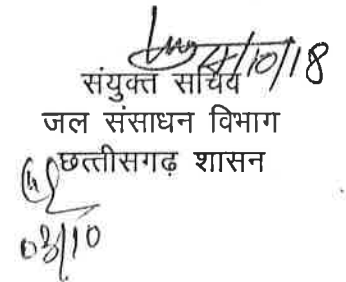 4/10/18
संयुक्त सचिव
जल संसाधन विभाग
छत्तीसगढ़ शासन
03/10